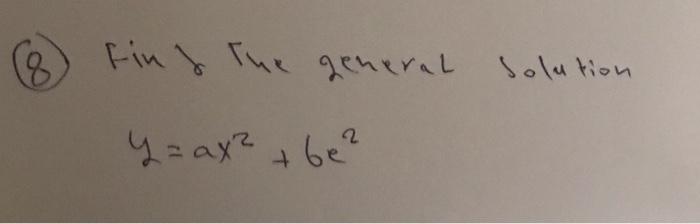 (8) Find The general Solution
y = ax² + be²